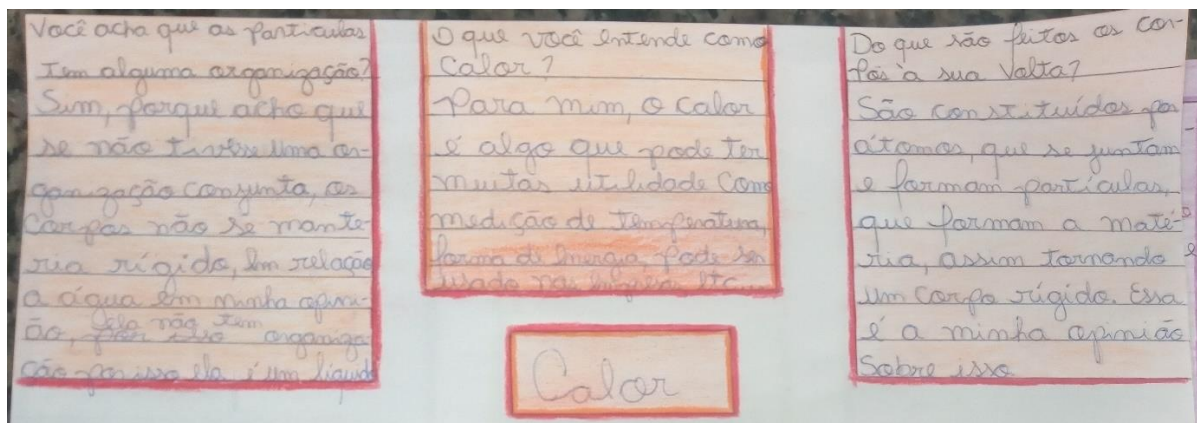 Você acha que as Particulas
tem alguma organização?
Sim, porque acho que
se não tivesse uma or-
ganização conjunta, os
corpos não se mante-
ria rígido, em relação
a água em minha opini-
ão, ela não tem organiza-
ção por isso ela é um liquido
O que você entende como
Calor?
Para mim, o calor
é algo que pode ter
muitas utilidade como
medição de temperatura,
forma de energia pode ser
usado nas etc...
Calor
Do que são feitos os cor-
pos à sua volta?
São constituídos por
átomos, que se juntam
e formam partículas,
que formam a maté-
ria, assim tornando
um corpo rígido. Essa
é a minha opinião
sobre isso